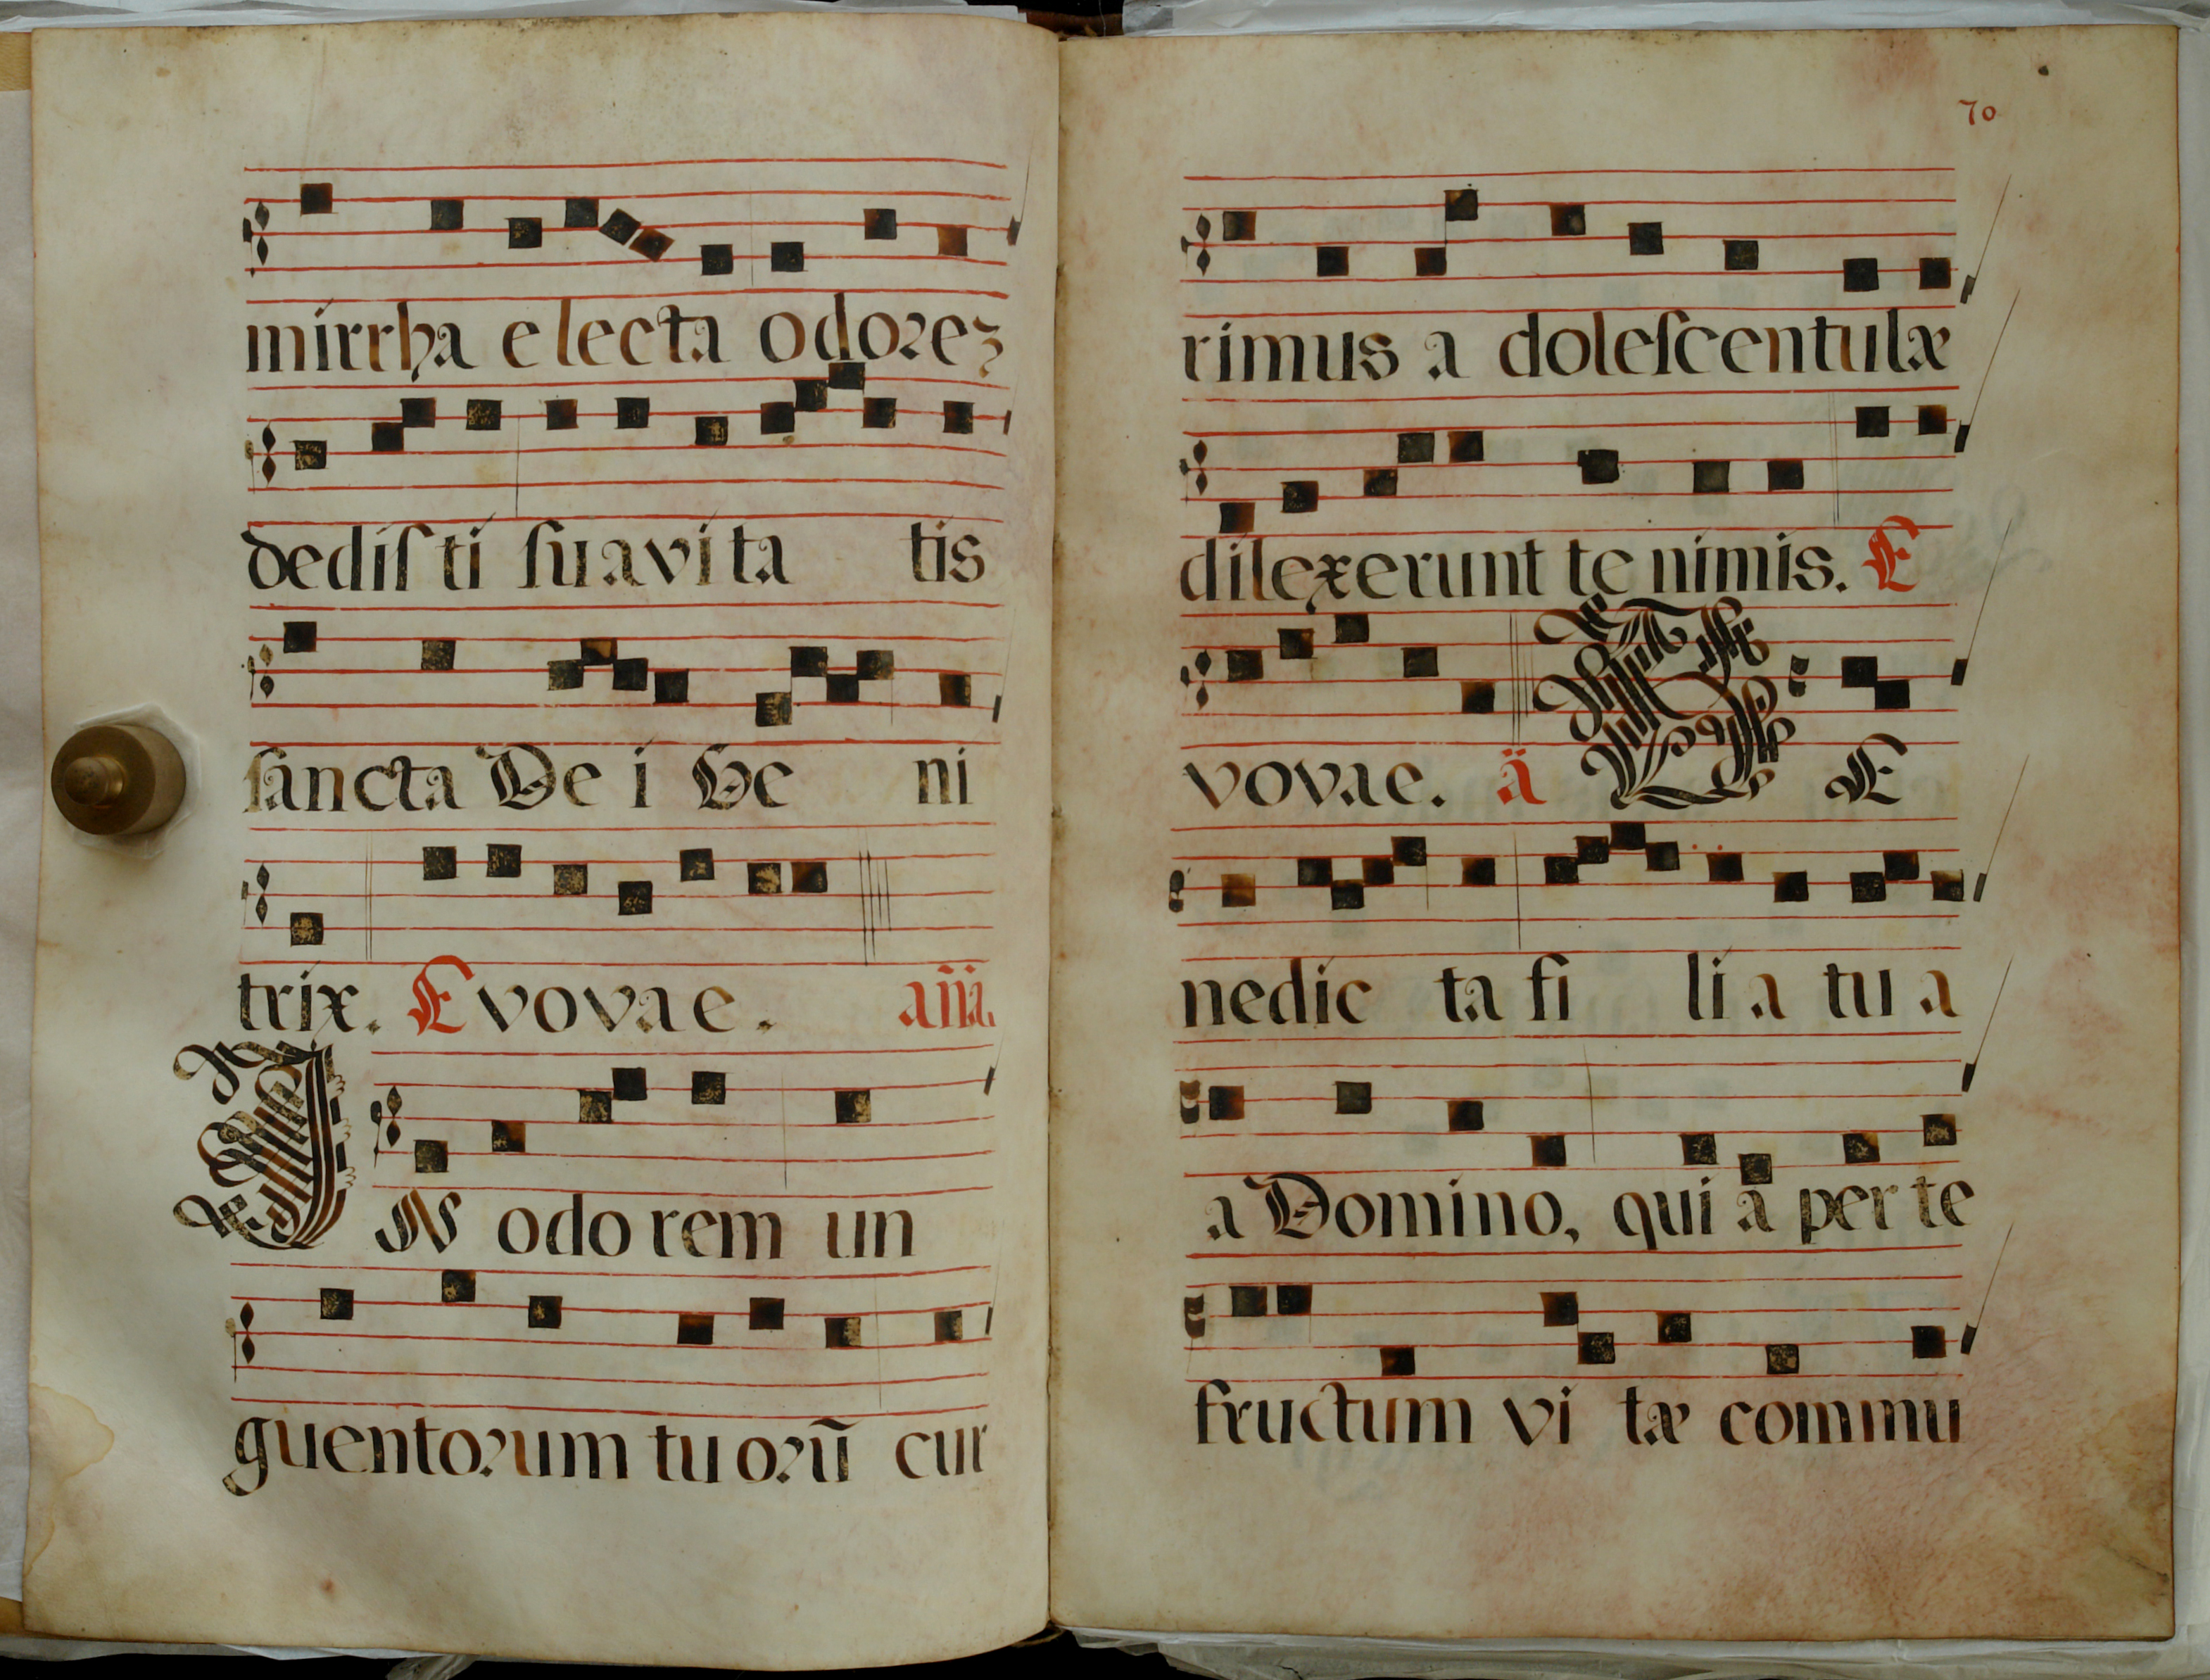 mirrha electa odorez
dedisti suavitatis
sancta Dei Geni
trix. Evovae. aña.
IN odorem un
guentorum tuorũ cur
70
rimus a dolescentulæ
dilexerunt te nimis. E
vovae. ã BE
nedicta filia tua
a Domino, qui a per te
fructum vitæ commu